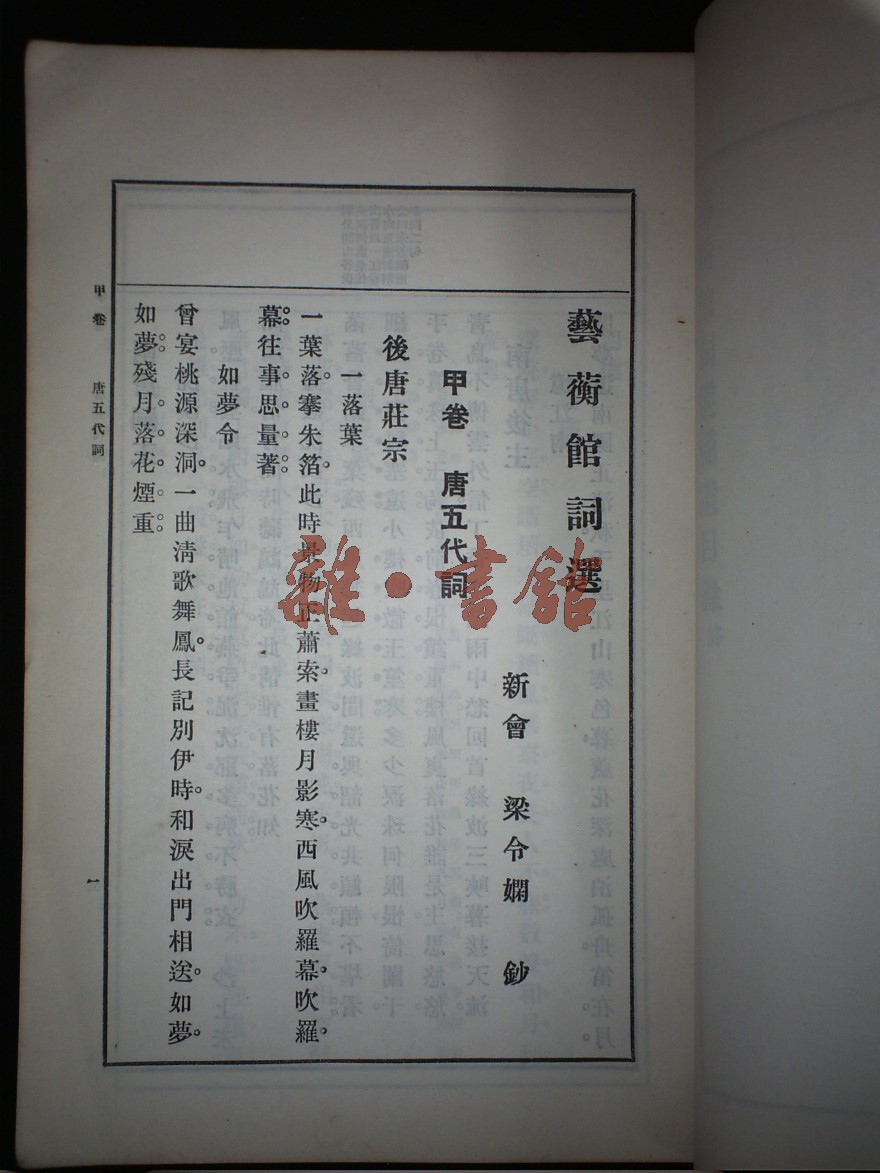 藝蘅館詞選
新會 梁令嫻 鈔
甲卷 唐五代詞
後唐莊宗
一落葉
一葉落。搴朱箔。此時景物正蕭索。畫樓月影寒。西風吹羅幕。吹羅
幕。往事思量著。
如夢令
曾宴桃源深洞。一曲淸歌舞鳳。長記別伊時。和淚出門相送。如夢。
如夢。殘月落花煙重。
甲卷 唐五代詞 一
雜·書館